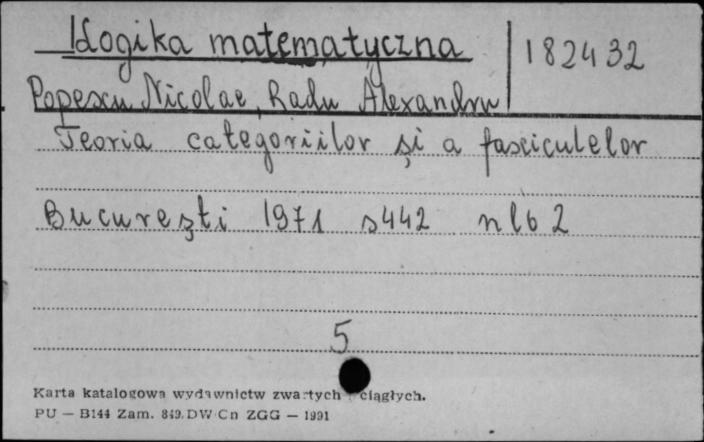 Logika matematyczna
182432
Popescu Nicolae, Radu Alexandru
Teoria categoriilor şi a fasciculelor
Bucureşti 1971 s442 nlb 2
5
Karta katalogowa wydawnictw zwartych i ciągłych.
PU — B144 Zam. 849. DW Cn ZGG — 1991